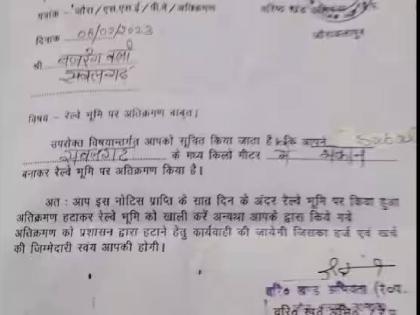 पत्रांक - जौरा/एस.एस.ई/पी.वे/अतिक्रमण
वरिष्ठ खंड
दिनांक 08/02/2023
जौराअलापुर
श्री बजरंग बली
सबलगढ़
विषय - रेल्वे भूमि पर अतिक्रमण बाबत।
उपरोक्त विषयान्तर्गत आपको सूचित किया जाता है कि आपने
सबलगढ के मध्य किलो मीटर में मकान
बनाकर रेल्वे भूमि पर अतिक्रमण किया है।
अत : आप इस नोटिस प्राप्ति के सात दिन के अंदर रेल्वे भूमि पर किया हुआ
अतिक्रमण हटाकर रेल्वे भूमि को खाली करें अन्यथा आपके द्वारा किये गये
अतिक्रमण को प्रशासन द्वारा हटाने हेतु कार्यवाही की जायेगी जिसका हर्ज एवं खर्च
की जिम्मेदारी स्वयं आपकी होगी।
वरि० खण्ड अभियंता